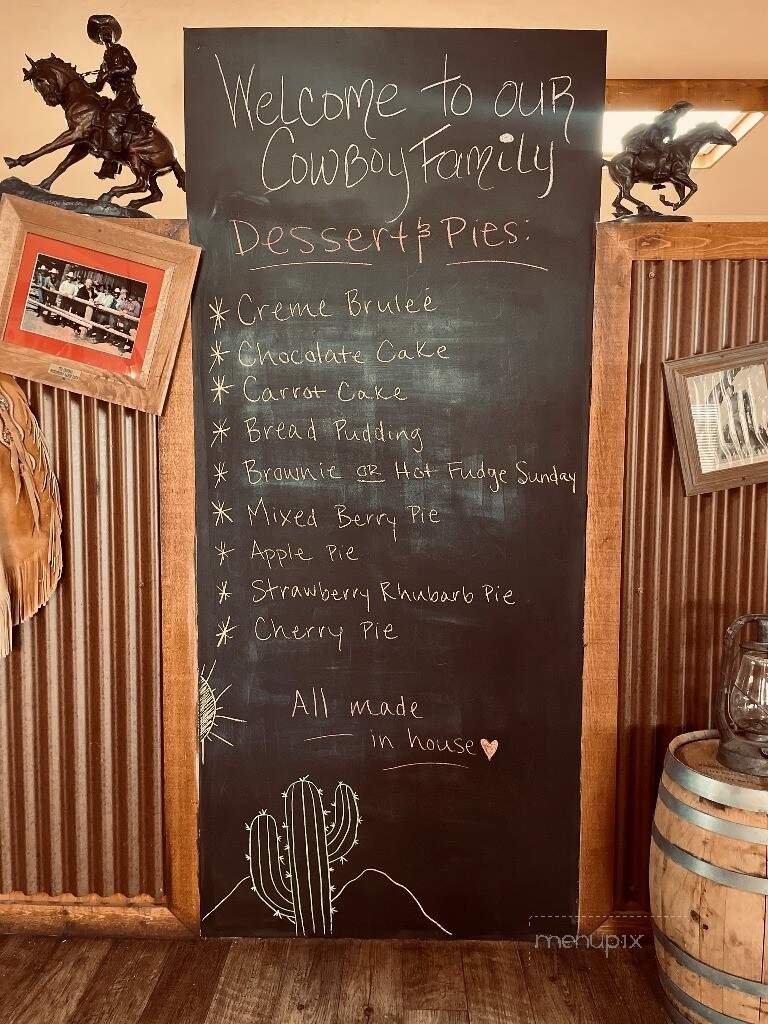 Welcome to our
Cowboy Family
Dessert & Pies:
* Creme Bruleé
* Chocolate Cake
* Carrot Cake
* Bread Pudding
* Brownie OR Hot Fudge Sunday
* Mixed Berry Pie
* Apple Pie
* Strawberry Rhubarb Pie
* Cherry Pie
All made
in house
menupix